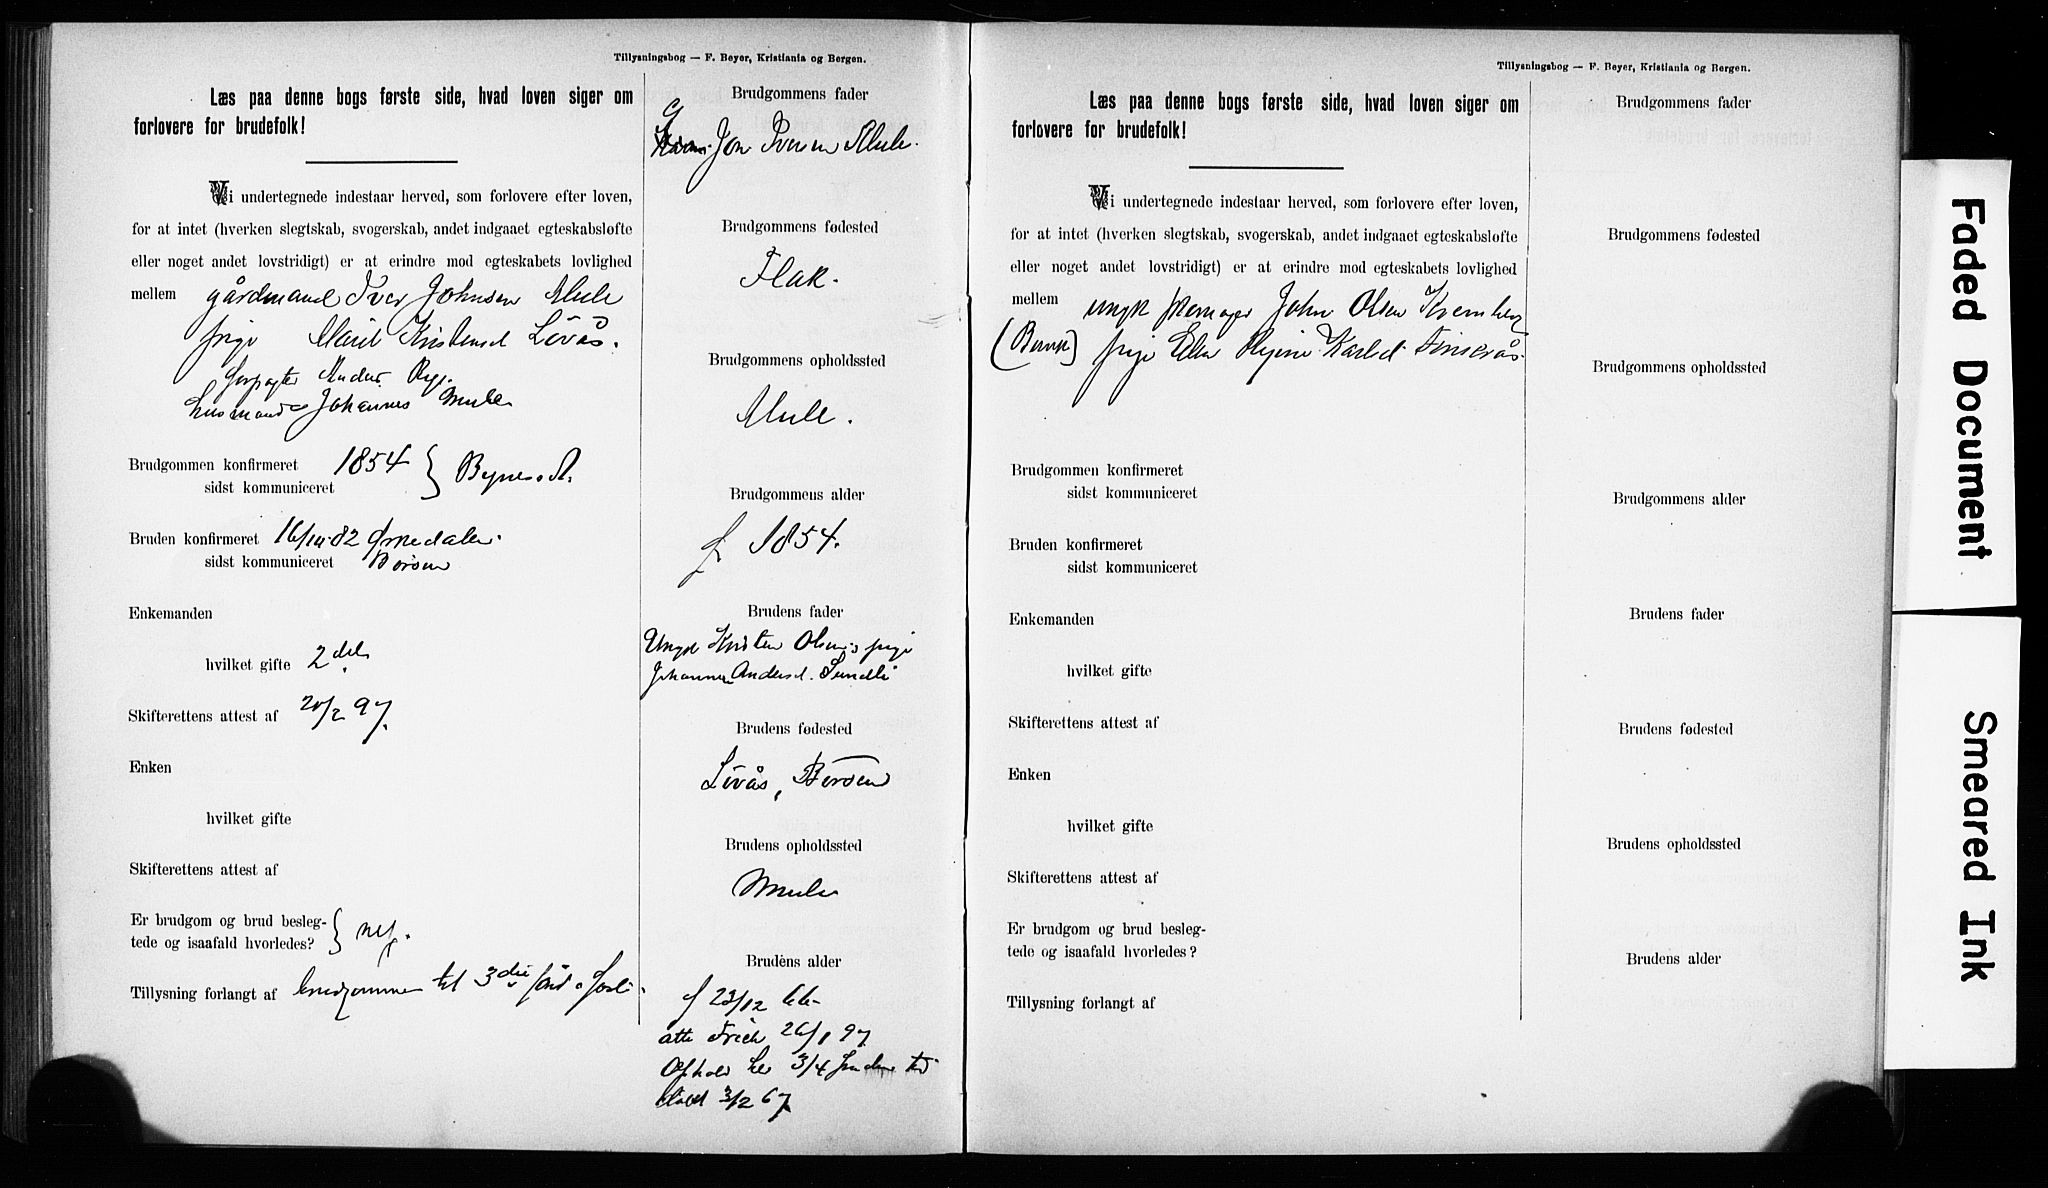 Tillysningsbog — F. Beyer, Kristiania og Bergen.
Læs paa denne bogs første side, hvad loven siger om
forlovere for brudefolk!
Vi undertegnede indestaar herved, som forlovere efter loven,
for at intet (hverken slegtskab, svogerskab, andet indgaaet egteskabsløfte
eller noget andet lovstridigt) er at erindre mod egteskabets lovlighed
mellem gårdmand Iver Johnsen Mule
pige Marit Kristensd Løvås.
Anders Rye.
husmand Johannes Mule
Brudgommen konfirmeret 1854 } Bynes
sidst kommuniceret
Bruden konfirmeret 82
sidst kommuniceret Børsen
Enkemanden
hvilket gifte 2
Skifterettens attest af 20/2 97.
Enken
hvilket gifte
Skifterettens attest af
Er brudgom og brud besleg-
tede og isaafald hvorledes? } nej.
Tillysning forlangt af brudgommen til 3
Brudgommens fader
Jon Iversen Mule.
Brudgommens fødested
Flak.
Brudgommens opholdssted
Mule.
Brudgommens alder
f 1854.
Brudens fader
Ungk Kristen Olsen, pige
Johanna Andersd. Sundli
Brudens fødested
Løvås, Børsen
Brudens opholdssted
Mule
Brudens alder
f 23/12 66
att 26/1 97
Ophold her 3/4
3/2 67
Tillysningsbog — F. Beyer, Kristiania og Bergen.
Læs paa denne bogs første side, hvad loven siger om
forlovere for brudefolk!
Vi undertegnede indestaar herved, som forlovere efter loven,
for at intet (hverken slegtskab, svogerskab, andet indgaaet egteskabsløfte
eller noget andet lovstridigt) er at erindre mod egteskabets lovlighed
mellem ungk skomager John Olsen
pige
Brudgommen konfirmeret
sidst kommuniceret
Bruden konfirmeret
sidst kommuniceret
Enkemanden
hvilket gifte
Skifterettens attest af
Enken
hvilket gifte
Skifterettens attest af
Er brudgom og brud besleg-
tede og isaafald hvorledes?
Tillysning forlangt af
Brudgommens fader
Brudgommens fødested
Brudgommens opholdssted
Brudgommens alder
Brudens fader
Brudens fødested
Brudens opholdssted
Brudens alder
Faded Document
Smeared Ink